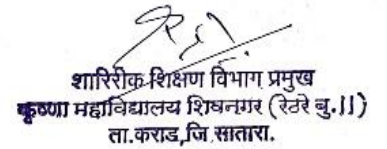 शारिरीक शिक्षण विभाग प्रमुख
कृष्णा महाविद्यालय शिवनगर (रेटरे बु.।।)
ता.कराड,जि.सातारा.